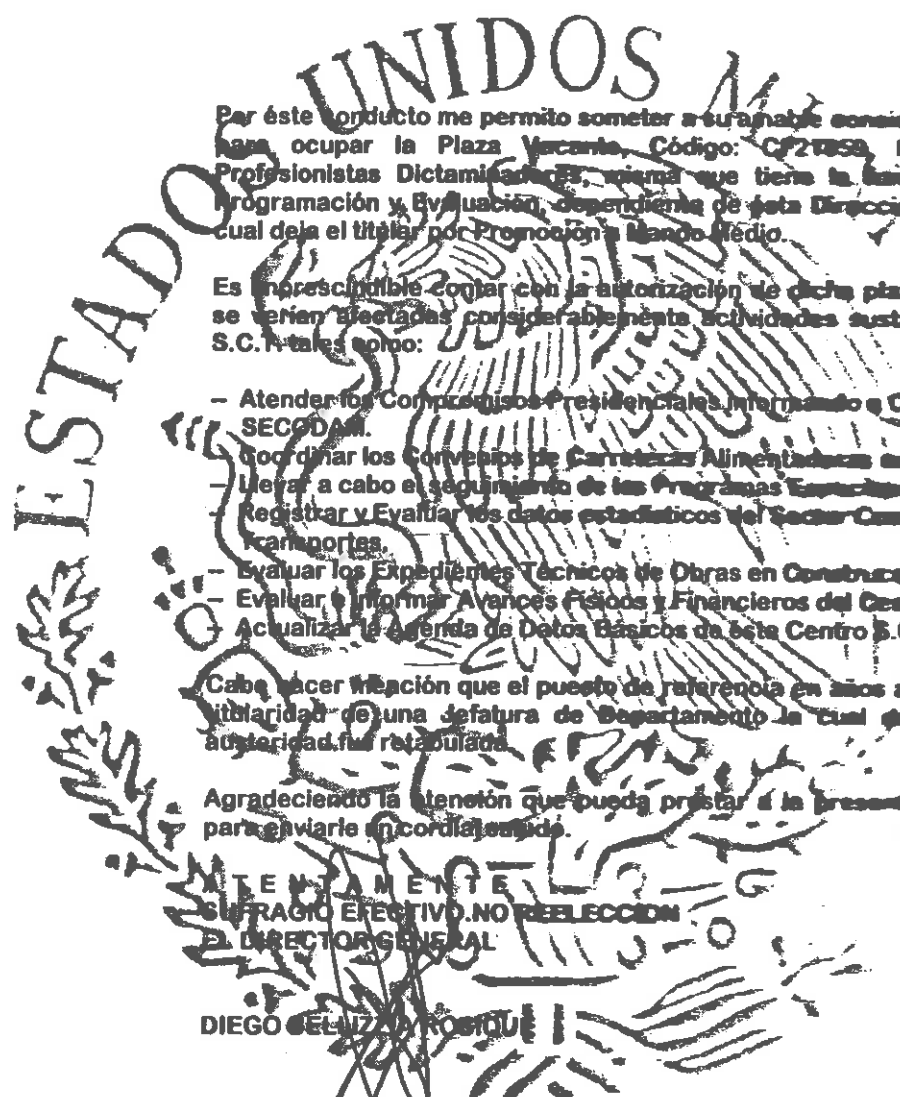 ESTADOS UNIDOS M
Por éste conducto me permito someter a su amable
para ocupar la Plaza Vacante, Código:
Profesionistas Dictaminadores, misma que tiene la
Programación y Evaluación, dependiente de ésta
cual deja el titular por Promoción a Mando Medio.
Es imprescindible contar con la autorización de dicha
se verían afectadas considerablemente actividades
S.C.T. tales como:
– Atender los Compromisos Presidenciales Informando a
SECODAM.
– Coordinar los Convenios de Carreteras Alimentadoras
– Llevar a cabo el seguimiento de los Programas
– Registrar y Evaluar los datos estadísticos del Sector
Transportes.
– Evaluar los Expedientes Técnicos de Obras en
– Evaluar e Informar Avances Físicos y Financieros del
– Actualizar la Agenda de Datos Básicos de éste Centro
Cabe hacer mención que el puesto de referencia en años
titularidad de una Jefatura de Departamento la cual
austeridad fue retabulada.
Agradeciendo la atención que pueda prestar a la
para enviarle un cordial saludo.
A T E N T A M E N T E
SUFRAGIO EFECTIVO.NO REELECCION
EL DIRECTOR GENERAL
DIEGO